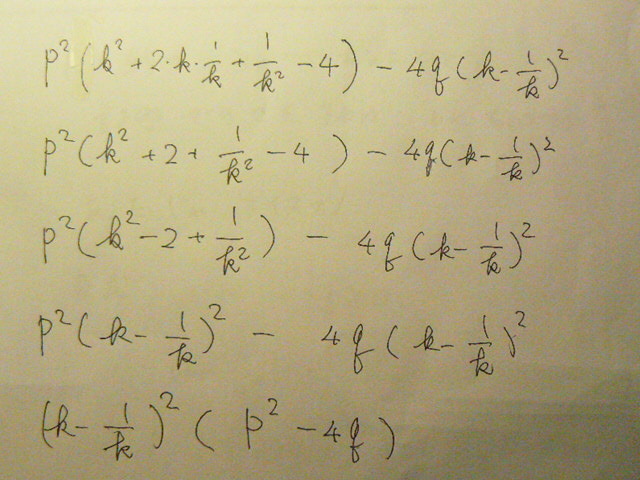 p²(k² + 2·k·1/k + 1/k² − 4) − 4q(k − 1/k)²
p²(k² + 2 + 1/k² − 4) − 4q(k − 1/k)²
p²(k² − 2 + 1/k²) − 4q(k − 1/k)²
p²(k − 1/k)² − 4q(k − 1/k)²
(k − 1/k)²(p² − 4q)